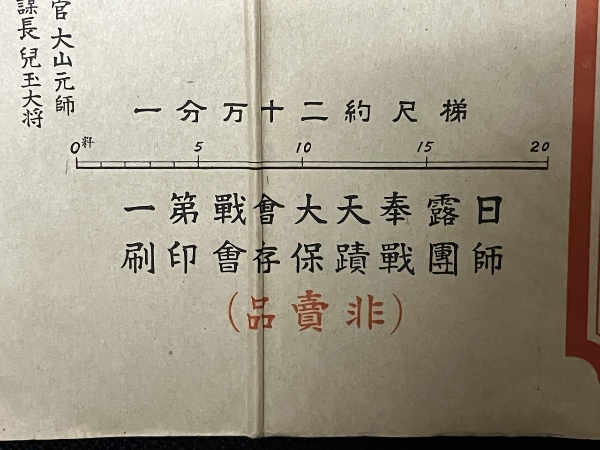 官 大山元師
謀長 兒玉大将
梯尺約二十万分一
0粁 5 10 15 20
日露奉天大會戰第一
師團戰蹟保存會印刷
(非賣品)